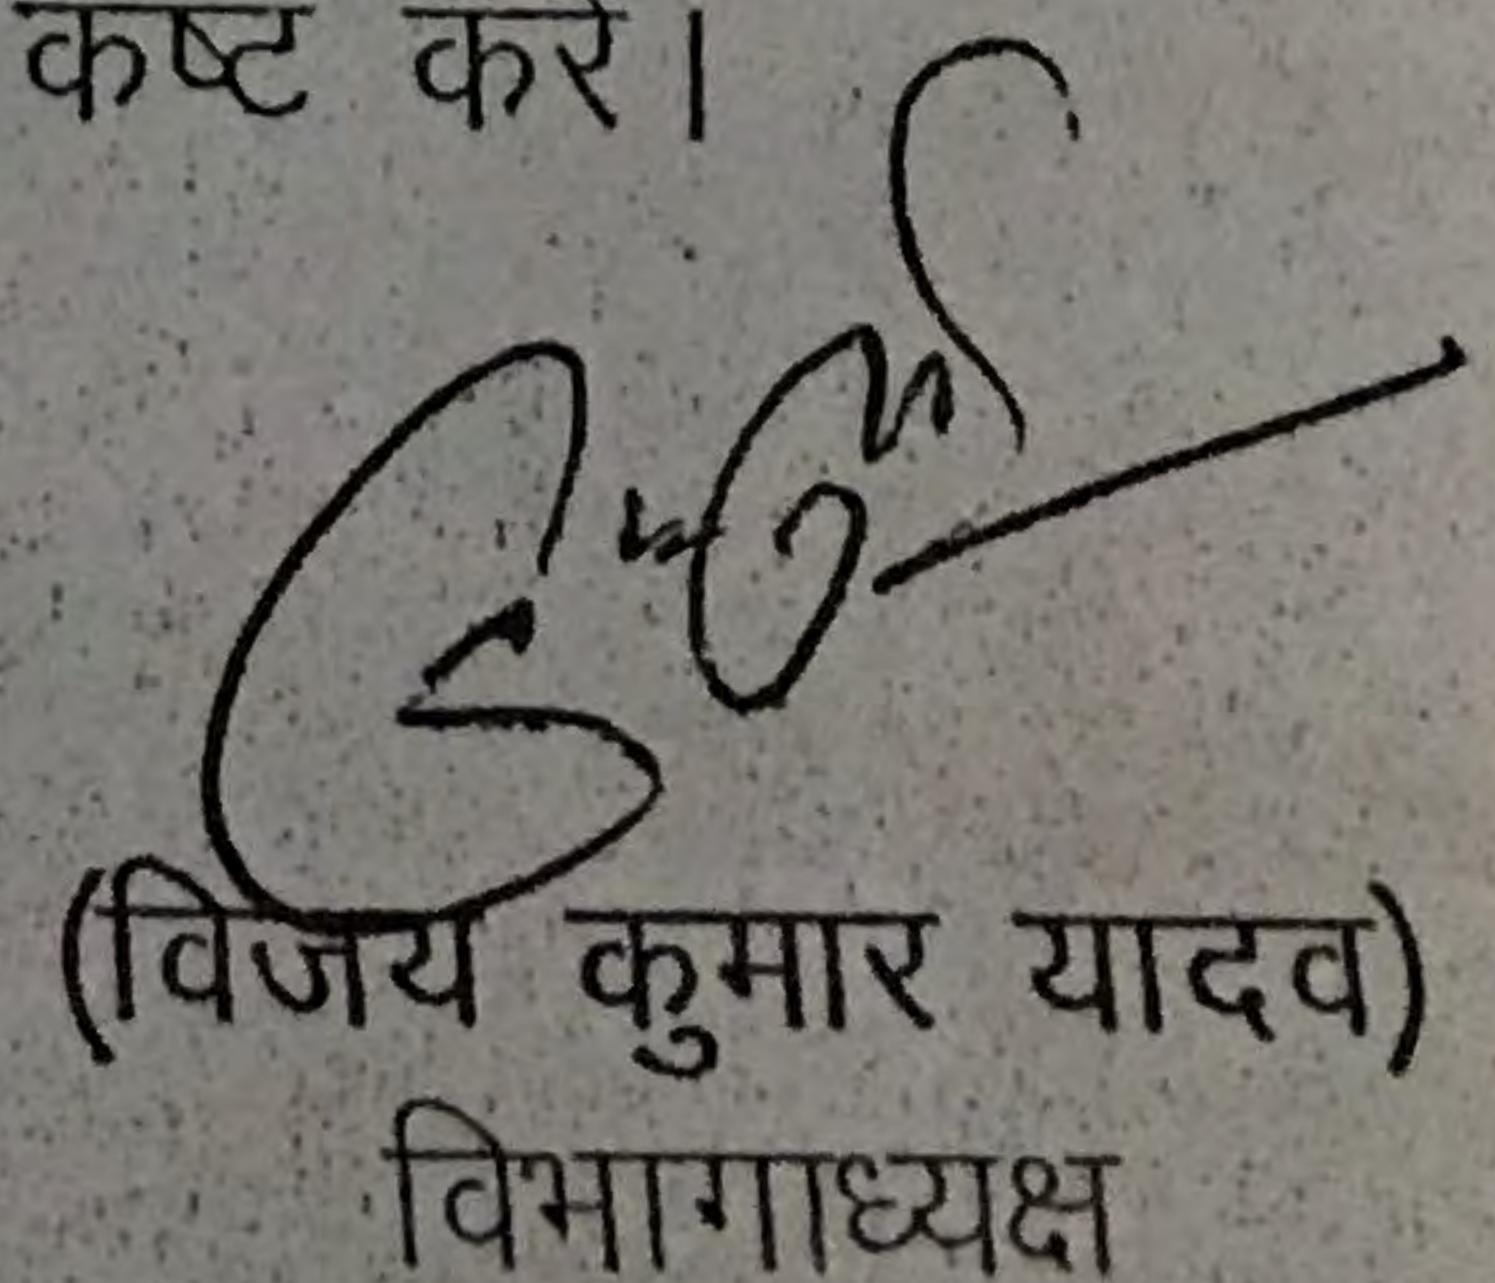 कष्ट करें।
(विजय कुमार यादव)
विभागाध्यक्ष